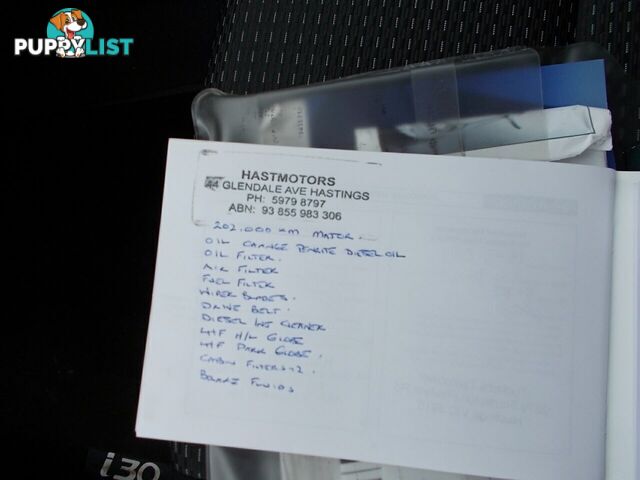 PUPPYLIST
HASTMOTORS
GLENDALE AVE HASTINGS
PH: 5979 8797
ABN: 93 855 983 306
202.000 KM MAJOR.
OIL CHANGE PENRITE DIESEL OIL
OIL FILTER.
AIR FILTER
FUEL FILTER
WIPER BLADES.
DRIVE BELT.
DIESEL INJ CLEANER
L/H/F H/L GLOBE
L/H/F PARK GLOBE.
CABIN FILTERS x 2.
BRAKE FLUIDS
i30